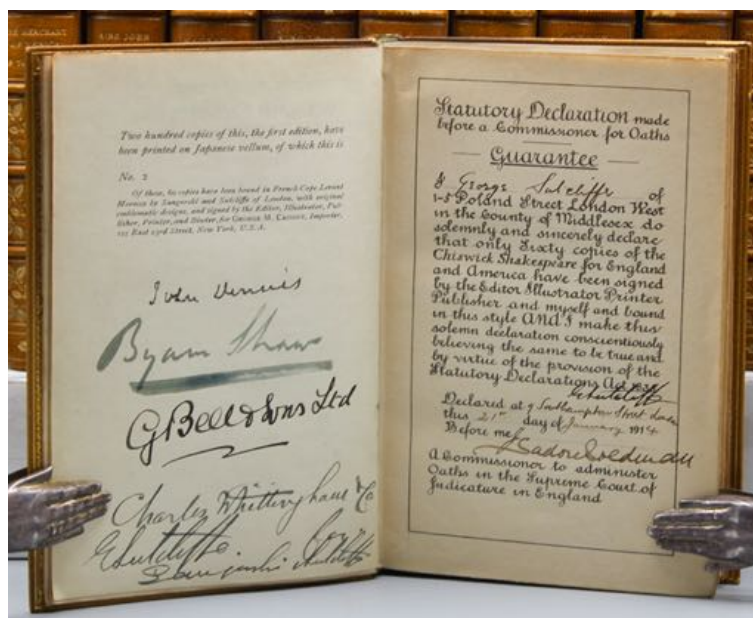 MERCHANT
KING JOHN
Two hundred copies of this, the first edition, have
been printed on Japanese vellum, of which this is
No. 2
Of these, 60 copies have been bound in French Cape Levant
Morocco by Sangorski and Sutcliffe of London, with original
emblematic designs, and signed by the Editor, Illustrator, Pub-
lisher, Printer, and Binder, for GEORGE M. Importer,
East 23rd Street, New York, U.S.A.
John Dennis
Byam Shaw
G Bell & Sons Ltd
Charles Whittingham & Co
G Sutcliffe
Sangorski Sutcliffe
Statutory Declaration made
before a Commissioner for Oaths
Guarantee
I George Sutcliffe of
1-5 Poland Street London West
in the County of Middlesex do
solemnly and sincerely declare
that only Sixty copies of the
Chiswick Shakespeare for England
and America have been signed
by the Editor Illustrator Printer
Publisher and myself and bound
in this style AND I make this
solemn declaration conscientiously
believing the same to be true and
by virtue of the provision of the
Statutory Declarations Act
G Sutcliffe
Declared at 9 Southampton Street London
this 21st day of January 1914
Before me,
A Commissioner to administer
Oaths in the Supreme Court of
Judicature in England